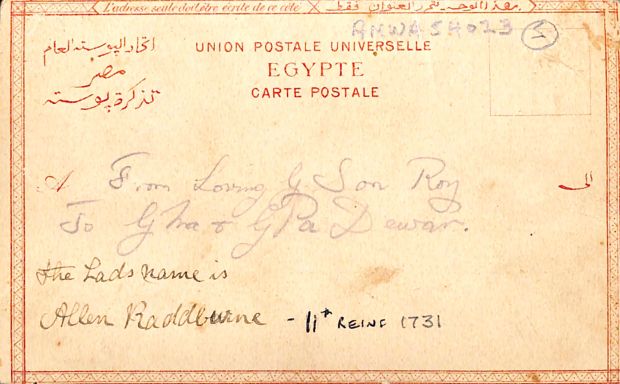 L'adresse seule doit être écrite de ce côté هذا الوجه تحرير العنوان فقط
ANWASH023 5
اتحاد البوسته العام UNION POSTALE UNIVERSELLE
مصر EGYPTE
تذكرة بوسته CARTE POSTALE
A. From Loving G Son Roy الى
To G Ma & G Pa Dewar.
the Lads name is
Allen Raddburne - 11th REINF 1731